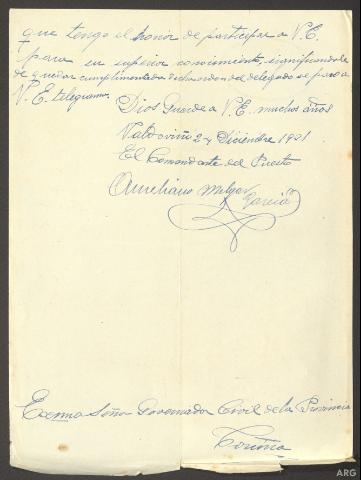 que tengo el honor de participar a V.E.
para su superior conocimiento, significandole
de quedar cumplimentada dicha orden del delegado se paso a
V. E. telegrama.
Dios Guarde a V.E. muchos años
Valdoviño 24 Diciembre 1921
El Comandante del Puesto
Aureliano Melgar
Garcia
Exmno Señor Governador Civil de la Provincia
Coruña
ARG